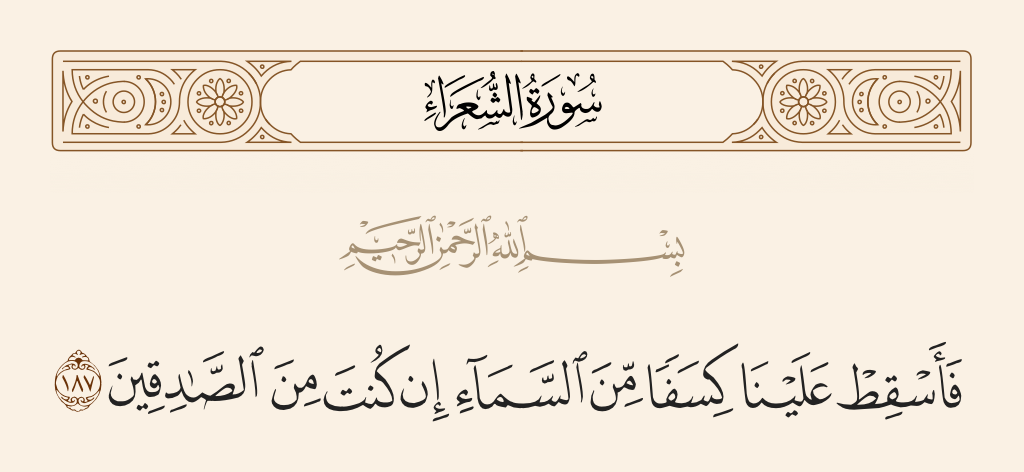 سُورَةُ الشُّعَرَاءِ
بِسْمِ ٱللَّهِ ٱلرَّحْمَٰنِ ٱلرَّحِيمِ
فَأَسْقِطْ عَلَيْنَا كِسَفًا مِّنَ ٱلسَّمَآءِ إِن كُنتَ مِنَ ٱلصَّٰدِقِينَ ١٨٧